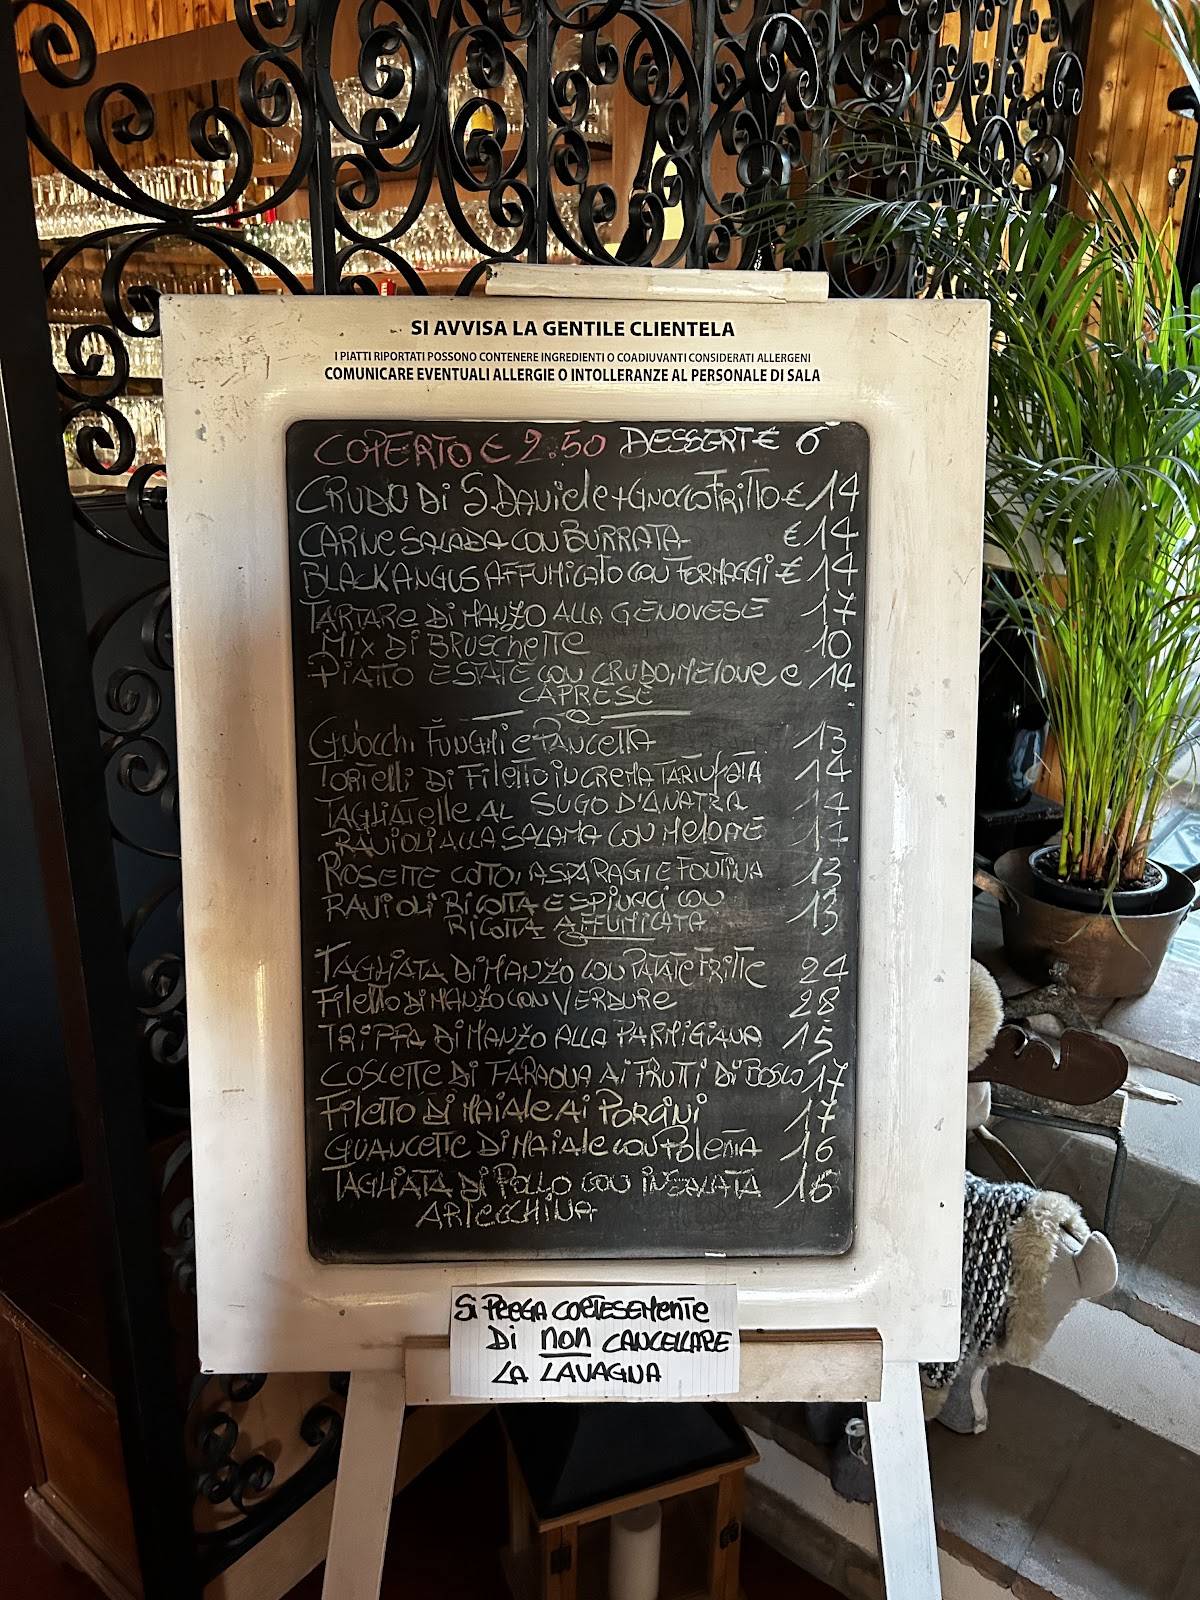 SI AVVISA LA GENTILE CLIENTELA
I PIATTI RIPORTATI POSSONO CONTENERE INGREDIENTI O COADIUVANTI CONSIDERATI ALLERGENI
COMUNICARE EVENTUALI ALLERGIE O INTOLLERANZE AL PERSONALE DI SALA
COPERTO € 2.50 DESSERT € 6
CRUDO DI S. DANIELE + GNOCCO FRITTO € 14
CARNE SALADA CON BURRATA € 14
BLACK ANGUS AFFUMICATO CON FORMAGGI € 14
TARTARE DI MANZO ALLA GENOVESE 17
MIX DI BRUSCHETTE 10
PIATTO ESTATE CON CRUDO, MELONE e 14
CAPRESE
GNOCCHI FUNGHI e PANCETTA 13
TORTELLI DI FILETTO IN CREMA TARTUFATA 14
TAGLIATELLE AL SUGO D'ANATRA 14
RAVIOLI ALLA SALAMA CON MELONE
ROSETTE COTTO, ASPARAGI E FONTINA 13
RAVIOLI RICOTTA E SPINACI CON 13
RICOTTA AFFUMICATA
TAGLIATA DI MANZO CON PATATE FRITTE 24
FILETTO DI MANZO CON VERDURE 28
TRIPPA DI MANZO ALLA PARMIGIANA 15
COSCETTE DI FARAONA AI FRUTTI DI BOSCO 17
FILETTO DI MAIALE AI PORCINI 17
GUANCETTE DI MAIALE CON POLENTA 16
TAGLIATA DI POLLO CON INSALATA 16
ARLECCHINA
SI PREGA CORTESEMENTE
DI NON CANCELLARE
LA LAVAGNA